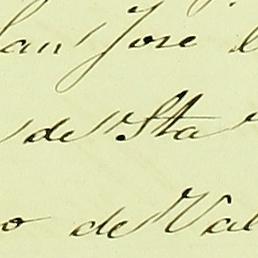 San José
de Sta
de Val